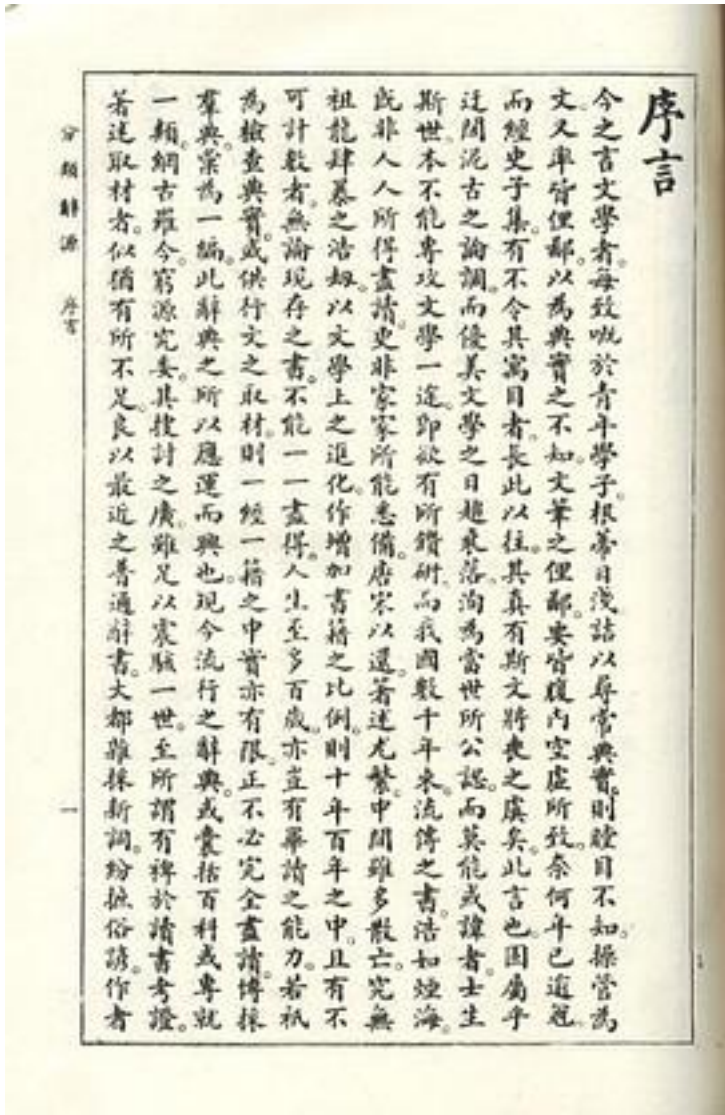 序言
今之言文學者。每致嘅於青年學子。根蒂日淺。詰以尋常典實。則瞠目不知。操管為
文。又率皆俚鄙。以為典實之不知。文筆之俚鄙。要皆腹內空虛所致。奈何年已逾冠。
而經史子集。有不令其寓目者。長此以往。其真有斯文將喪之虞矣。此言也。固屬乎
迂闊泥古之論調。而優美文學之日趨衰落。洵為當世所公認。而莫能或諱者。士生
斯世。本不能專攻文學一途。即欲有所鑽研。而我國數千年來。流傳之書。浩如煙海。
既非人人所得盡讀。更非家家所能悉備。唐宋以還。著述尤繁。中間雖多散亡。究無
祖龍肆暴之浩劫。以文學上之進化。作增加書籍之比例。則十年百年之中。且有不
可計數者。無論現存之書。不能一一盡得。人生至多百歲。亦豈有畢讀之能力。若祇
為檢查典實。或供行文之取材。則一經一籍之中。實亦有限。正不必完全盡讀。博採
羣典。彙為一編。此辭典之所以應運而興也。現今流行之辭典。或囊括百科。或專就
一類。網古羅今。窮源究委。其搜討之廣。雖足以震駭一世。至所謂有裨於讀書考證。
著述取材者。似猶有所不足。良以最近之普通辭書。大都雜採新詞。紛摭俗諺。作者
分類辭源 序言 一